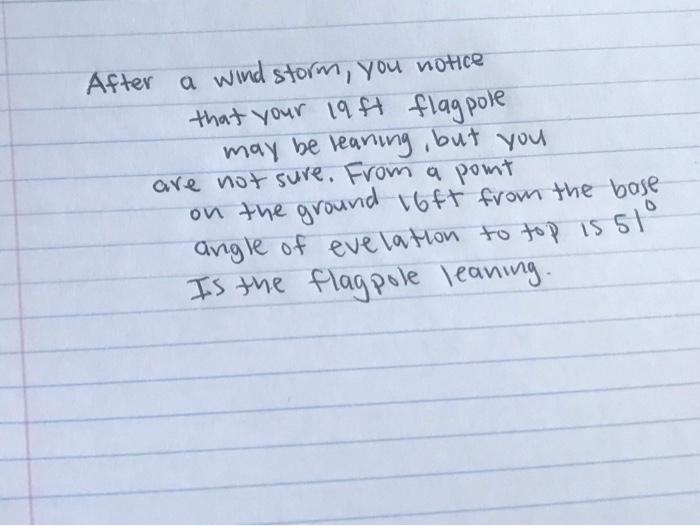 After a wind storm, you notice
that your 19 ft flagpole
may be leaning, but you
are not sure. From a point
on the ground 16ft from the base
angle of evelation to top is 51°
Is the flagpole leaning.